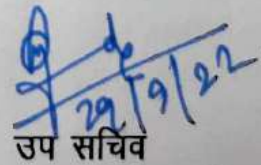 29/9/22
उप सचिव